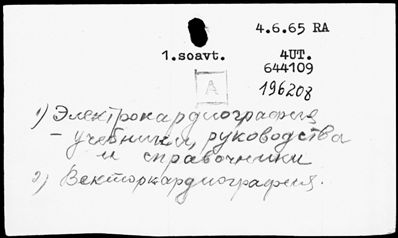 4.6.65 RA
1.soavt. 4UT.
644109
A
196208
1) Электрокардиография
- учебники, руководства
и справочники
2) Векторкардиография.